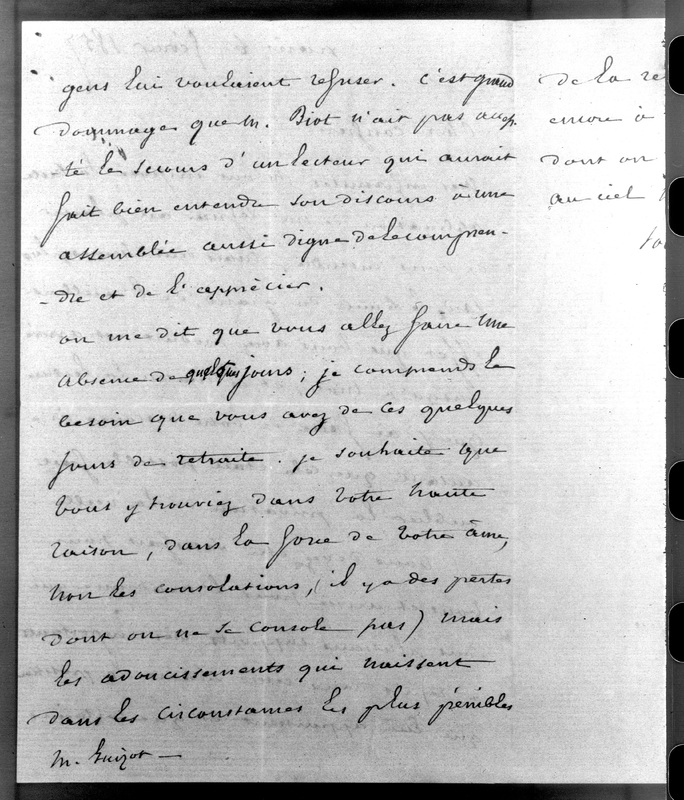 gens lui voulaient refuser. C'est grand
dommage que M. Biot n'ait pas accep
té le secours d'un lecteur qui aurait
fait bien entendre son discours à une
assemblée aussi digne de le compren-
-dre et de l'apprécier.
on me dit que vous allez faire une
absence de quelques jours ; je comprends le
besoin que vous avez de ces quelques
jours de retraite. je souhaite que
vous y trouviez dans votre haute
raison, dans la force de votre âme,
non les consolations, (il y a des pertes
dont on ne se console pas) mais
les adoucissements qui naissent
dans les circonstances les plus pénibles
M. Guizot —
de la re
encore à
dont on
au ciel